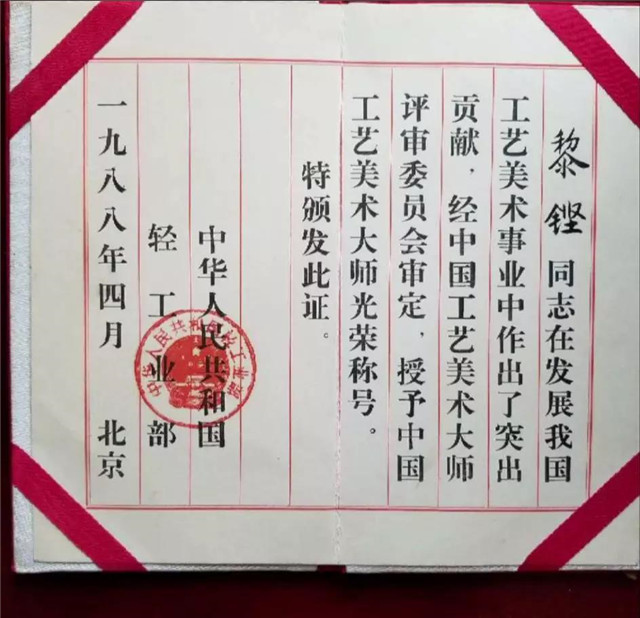 黎铿 同志在发展我国
工艺美术事业中作出了突出
贡献，经中国工艺美术大师
评审委员会审定，授予中国
工艺美术大师光荣称号。
特颁发此证。
中华人民共和国
轻工业部
一九八八年四月 北京
中华人民共和国轻工业部